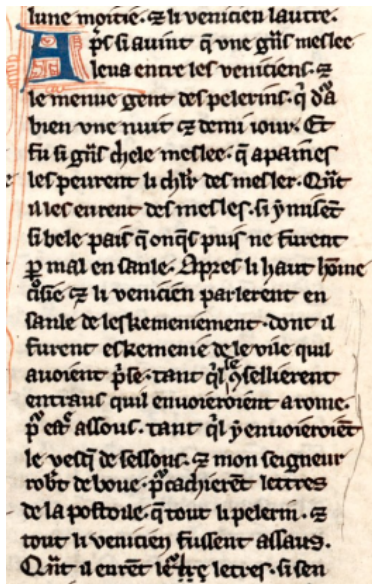 lune moitie. ⁊ li venicien lautre.
Aps si auint q̄ vne gñs meslee
leua entre les veniciens. ⁊
le menue gent des pelerins. q̄ dͣa
bien vne nuit ⁊ demi iour. Et
fu si gñs chele meslee. q̄ apaines
les peurent li chlr̄ desmesler. Qn̄t
il les eurent desmesles. si ẏ misēt
si bele pais q̄ onq̄s puis ne furent
ꝑ mal en sanle. Apres li haut hōme
cͦisie ⁊ li venicien parlerent en
sanle de leskemeniement. dont il
furent eskemenie de le vile quil
auoient pͥse. tant qͥl se ꝯsellierent
entraus quil enuoieroient a rome.
pͬ estͤ assous. tant qͥl ẏ enuoieroiēt
le vesq̄ de sessons. ⁊ mon seigneur
robt̄ de boue. pͬcachierēt lettres
de la postoile. q̄ tout li pelerin. ⁊
tout li venicien fussent assaus.
Qn̄t il eurēt letres. si sen